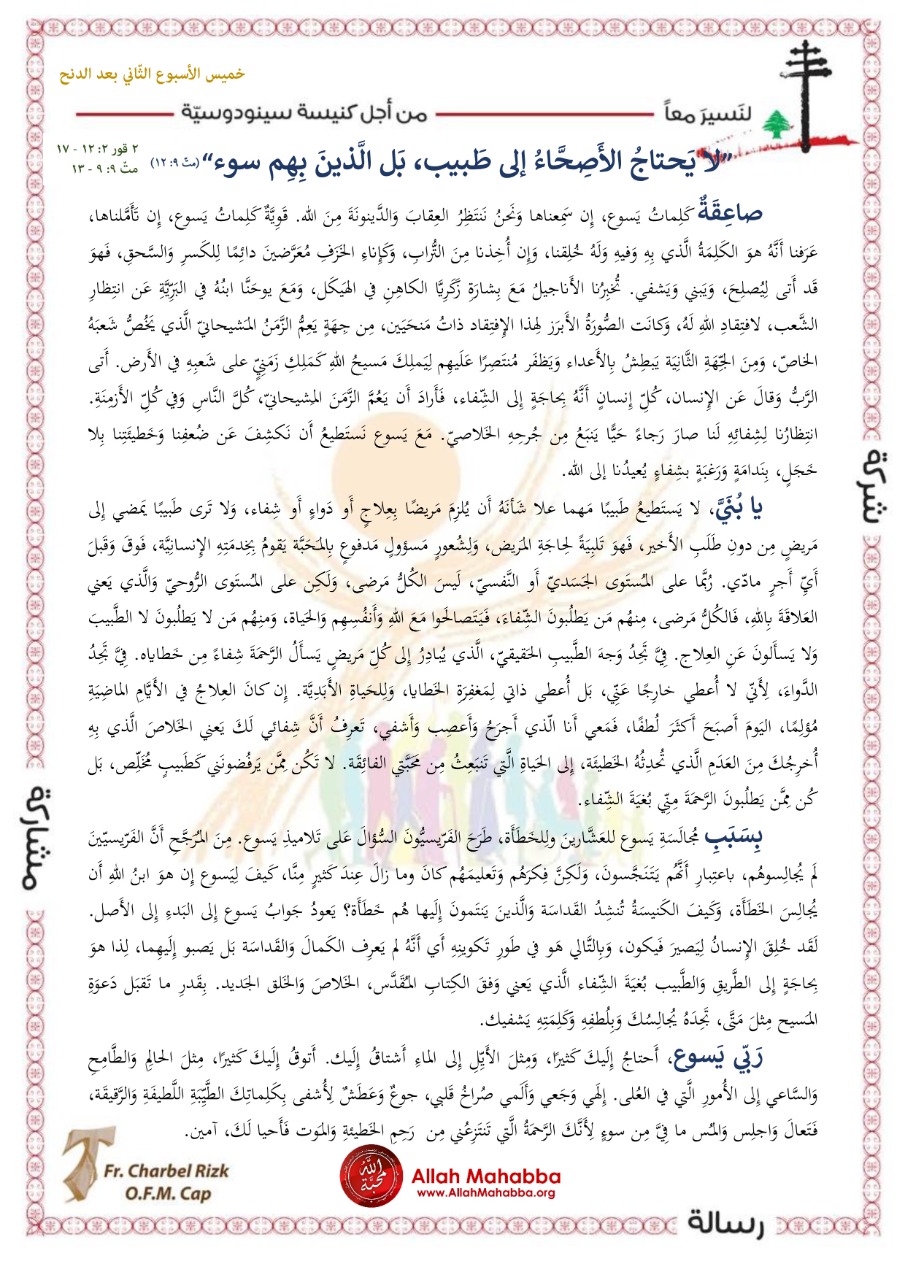 خميس الأسبوع الثّاني بعد الدنح
لنَسيرَ معاً
من أجل كنيسة سينودوسيّة
٢ قور ٢: ١٢ - ١٧
متّ ٩: ٩ - ١٣
”لا يَحتاجُ الأَصِحَّاءُ إلى طَبيب، بَل الَّذينَ بِهِم سوء“ (متّ ٩: ١٢)
صاعِقَةٌ كَلِماتُ يَسوع، إن سَمِعناها وَنَحنُ نَنتَظِرُ العِقابَ وَالدَّينونَةَ مِنَ الله. قَوِيَّةٌ كَلِماتُ يَسوع، إن تَأَمَّلناها،
عَرَفنا أنَّهُ هوَ الكَلِمَةُ الَّذي بِهِ وَفيهِ وَلَهُ خُلِقنا، وَإن أُخِذنا مِنَ التُّرابِ، وَكَإناءِ الخزَفِ مُعَرَّضينَ دائِمًا لِلكَسرِ وَالسَّحقِ، فَهوَ
قَد أَتى لِيُصلِحَ، وَيَبني وَيَشفي. تُخبِرُنا الأناجيلُ مَعَ بِشارَةِ زَكَرِيَّا الكاهِنِ في الهَيكَل، وَمَعَ يوحَنَّا ابنُهُ في البَرِّيَّةِ عَن انتِظارِ
الشَّعب، لافتِقادِ اللهِ لَهُ، وَكانَت الصُّورَةُ الأبرَز لِهذا الإفتِقاد ذاتُ مَنحَيَين، مِن جِهَةٍ يَعِمُّ الزَّمَنُ المَشيحانيّ الَّذي يَخُصُّ شَعبَهُ
الخاصّ، وَمِنَ الجِّهَةِ الثَّانِيَة يَبطِشُ بِالأعداء وَيَظفَر مُنتَصِرًا عَلَيهِم لِيَملِكَ مَسيحُ اللهِ كَمَلِكٍ زَمَنيٍّ على شَعبِهِ في الأرض. أتى
الرَّبُّ وَقالَ عَن الإنسان، كُلِّ إنسانٍ أنَّهُ بِحاجَةٍ إلى الشِّفاء، فَأَرادَ أن يَعُمَّ الزَّمَنَ المِشيحانيّ، كُلَّ النَّاسِ وَفي كُلِّ الأزمِنَةِ.
انتِظارُنا لِشِفائِهِ لَنا صارَ رَجاءً حَيًّا يَنبَعُ مِن جُرحِهِ الخَلاصيّ. مَعَ يَسوع نَستَطيعُ أن نَكشِفَ عَن ضُعفِنا وَخَطيئَتِنا بِلا
خَجَلٍ، بِنَدامَةٍ وَرَغبَةٍ بِشِفاءٍ يُعيدُنا إلى الله.
يا بُنَيَّ، لا يَستَطيعُ طَبيبًا مَهما علا شَأنَهُ أن يُلزِمَ مَريضًا بِعِلاجٍ أو دَواءٍ أو شِفاء، وَلا تَرى طَبيبًا يَمضي إلى
مَريضٍ مِن دونِ طَلَبِ الأخير، فَهوَ تَلبِيَةً لِحاجَةِ المَريض، وَلِشُعورِ مَسؤولٍ مَدفوعٍ بِالمَحَبَّة يَقومُ بِخِدمَتِهِ الإنسانِيَّة، فَوقَ وَقَبلَ
أيِّ أجرٍ مادّي. رُبَّما على المُستَوى الجَسَديّ أو النَّفسيّ، لَيسَ الكُلُّ مَرضى، وَلَكِن على المُستَوى الرُّوحيّ وَالَّذي يَعني
العَلاقَةَ بِاللهِ، فَالكُلُّ مَرضى، مِنهُم مَن يَطلُبونَ الشِّفاءَ، فَيَتَصالَحوا مَعَ اللهِ وَأنفُسِهِم وَالحَياة، وَمِنهُم مَن لا يَطلُبونَ لا الطَّبيبَ
وَلا يَسألونَ عَنِ العِلاج. فِيَّ تَجِدُ وَجهَ الطَّبيبِ الحَقيقيّ، الَّذي يُبادِرُ إلى كُلِّ مَريضٍ يَسألُ الرَّحمَةَ شِفاءً مِن خَطاياه. فِيَّ تَجِدُ
الدَّواءَ، لِأنّي لا أُعطي خارِجًا عَنّي، بَل أُعطي ذاتي لِمَغفِرَةِ الخَطايا، وَلِلحَياةِ الأبَدِيَّة. إن كانَ العِلاجُ في الأيَّامِ الماضِيَةِ
مُؤلِمًا، اليَومَ أصبَحَ أكثَرَ لُطفًا، فَمَعي أنا الّذي أجرَحُ وَأعصِب وَأشفي، تَعرِفُ أنَّ شِفائي لَكَ يَعني الخَلاصَ الَّذي بِهِ
أُخرِجُكَ مِنَ العَدَمِ الَّذي تُحدِثُهُ الخَطيئَة، إلى الحَياةِ الَّتي تَنبَعِثُ مِن مَحَبَّتي الفائِقَة. لا تَكُن مِمَّن يَرفُضونَني كَطَبيبٍ مُخَلِّص، بَل
كُن مِمَّن يَطلُبونَ الرَّحمَةَ مِنّي بُغيَةَ الشِّفاء.
بِسَبَبِ مُجالَسَةِ يَسوع للعَشَّارينَ وللخَطَأَة، طَرَحَ الفَرّيسيُّونَ السُّؤالَ عَلى تَلاميذِ يَسوع. مِنَ المُرَجَّحِ أنَّ الفَرّيسيّينَ
لَم يُجالِسوهُم، باعتِبارِ أنَّهُم يَتَنَجَّسونَ، وَلَكِنَّ فِكرَهُم وَتَعليمَهُم كانَ وما زالَ عِندَ كَثيرٍ مِنَّا، كَيفَ لِيَسوع إن هوَ ابنُ اللهِ أن
يُجالِسَ الخَطَأَة، وَكَيفَ الكَنيسَةُ تُنشِدُ القَداسَة وَالَّذينَ يَنتَمونَ إلَيها هُم خَطَأَة؟ يَعودُ جَوابُ يَسوع إلى البَدءِ إلى الأصل.
لَقَد خُلِقَ الإنسانُ لِيَصيرَ فَيَكون، وَبِالتَّالي هُوَ في طَورِ تَكوينِهِ أي أنَّهُ لم يَعرِف الكَمالَ وَالقَداسَةَ بَل يَصبو إلَيهِما، لِذا هوَ
بِحاجَةٍ إلى الطَّريقِ وَالطَّبيب بُغيَةَ الشِّفاء الَّذي يَعني وَفقَ الكِتابِ المُقَدَّس، الخَلاصَ وَالخَلق الجَديد. بِقَدرِ ما تَقبَل دَعوَةَ
المَسيح مِثلَ مَتَّى، تَجِدَهُ يُجالِسُكَ وَبِلُطفِهِ وَكَلِمَتِهِ يَشفيك.
رَبّي يَسوع، أحتاجُ إلَيكَ كَثيرًا، وَمِثلَ الأيِّلِ إلى الماءِ أشتاقُ إلَيك. أتوقُ إلَيكَ كَثيرًا، مِثلَ الحالِمِ وَالطَّامِحِ
وَالسَّاعي إلى الأُمورِ الَّتي في العُلى. إلهي وَجَعي وَألَمي صُراخُ قَلبي، جوعٌ وَعَطَشٌ لِأُشفى بِكَلِماتِكَ الطَّيِّبَةِ اللَّطيفَةِ وَالرَّقيقَة،
فَتَعالَ وَاجلِس وَالمُس ما فِيَّ مِن سوءٍ لِأنَّكَ الرَّحمَةُ الَّتي تَنتَزِعُني مِن رَحِمِ الخَطيئَةِ وَالمَوت فَأحيا لَكَ، آمين.
شركة
مشاركة
Fr. Charbel Rizk
O.F.M. Cap
الله محبّة
Allah Mahabba
www.AllahMahabba.org
رسالة